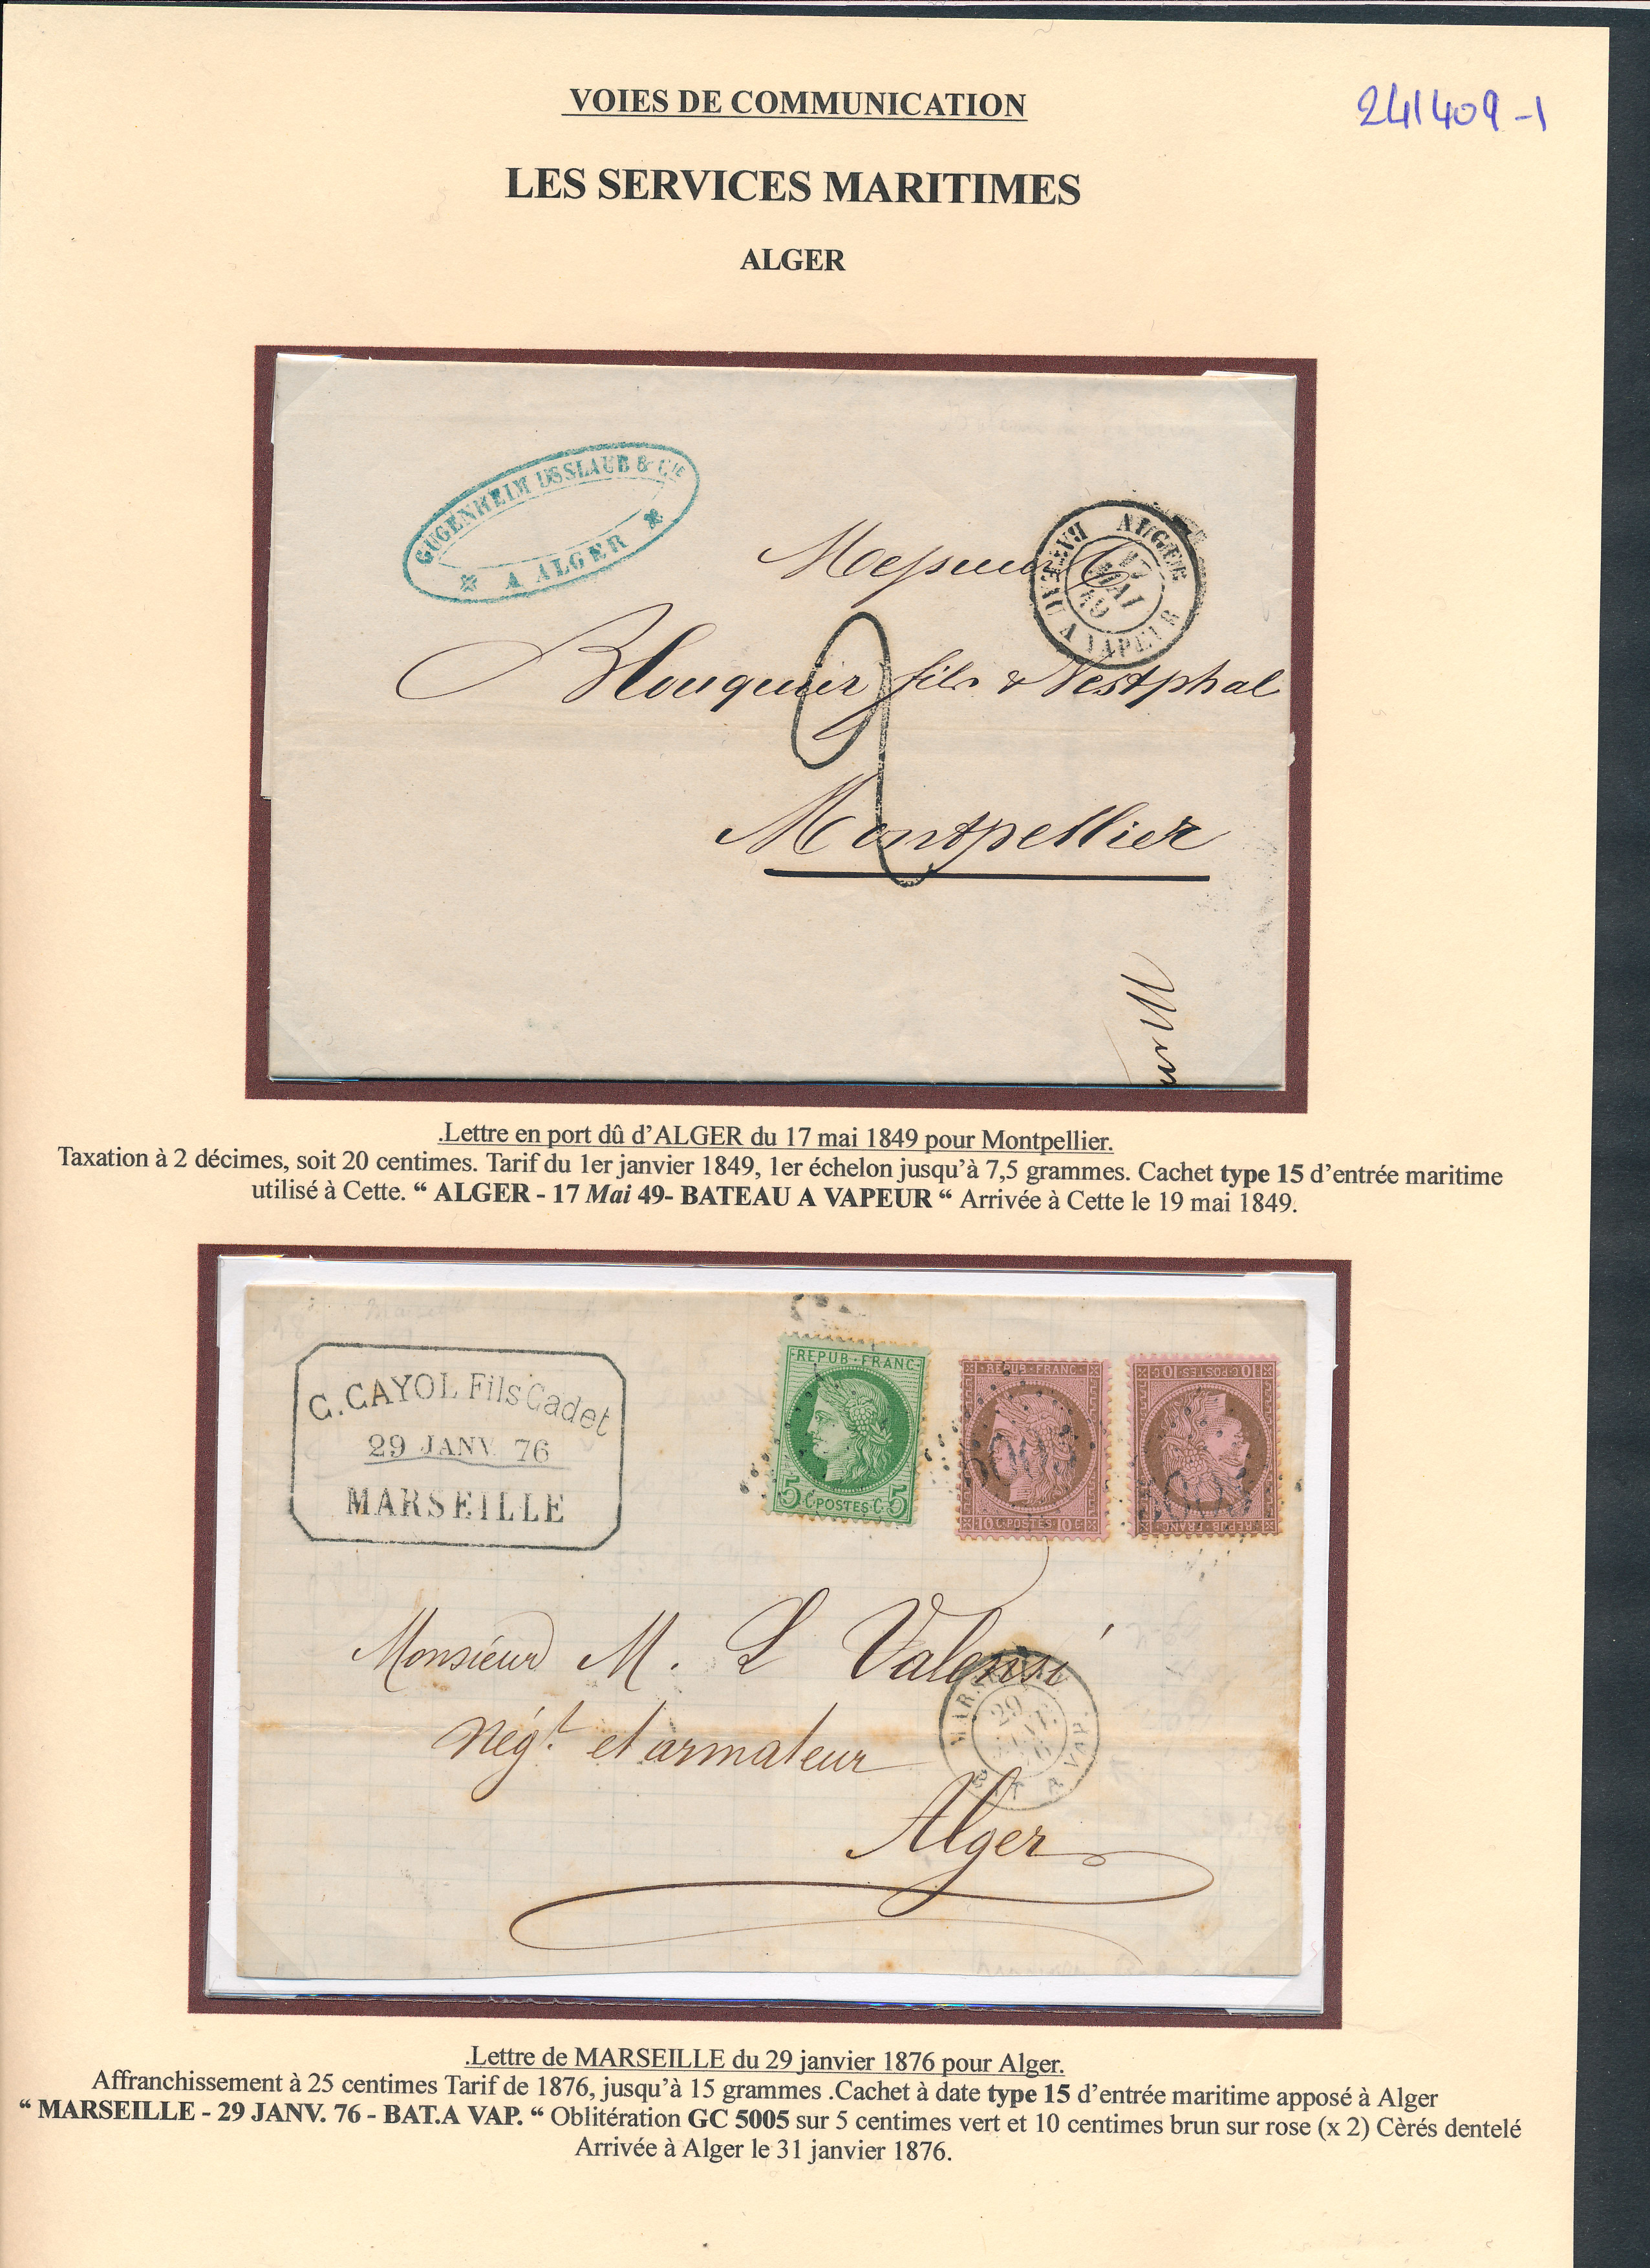 VOIES DE COMMUNICATION
241409-1
LES SERVICES MARITIMES
ALGER
GUGENHEIM USSLAUB & Cie
A ALGER
ALGER
17
MAI
49
BATEAU A VAPEUR
Messieurs
2
Blouquier fils & Westphal
Montpellier
.Lettre en port dû d'ALGER du 17 mai 1849 pour Montpellier.
Taxation à 2 décimes, soit 20 centimes. Tarif du 1er janvier 1849, 1er échelon jusqu'à 7,5 grammes. Cachet type 15 d'entrée maritime
utilisé à Cette. “ ALGER - 17 Mai 49- BATEAU A VAPEUR “ Arrivée à Cette le 19 mai 1849.
C. CAYOL Fils Cadet
29 JANV 76
MARSEILLE
REPUB·FRANC·
5 C·POSTES·C·5
REPUB·FRANC
10 C·POSTES 10 C
5005
REPUB·FRANC
10 C·POSTES 10 C
5005
Monsieur M. L Valensi
Négt et armateur
MARSEILLE
29
BAT A VAP.
Alger
.Lettre de MARSEILLE du 29 janvier 1876 pour Alger.
Affranchissement à 25 centimes Tarif de 1876, jusqu'à 15 grammes .Cachet à date type 15 d'entrée maritime apposé à Alger
“ MARSEILLE - 29 JANV. 76 - BAT.A VAP. “ Oblitération GC 5005 sur 5 centimes vert et 10 centimes brun sur rose (x 2) Cèrés dentelé
Arrivée à Alger le 31 janvier 1876.